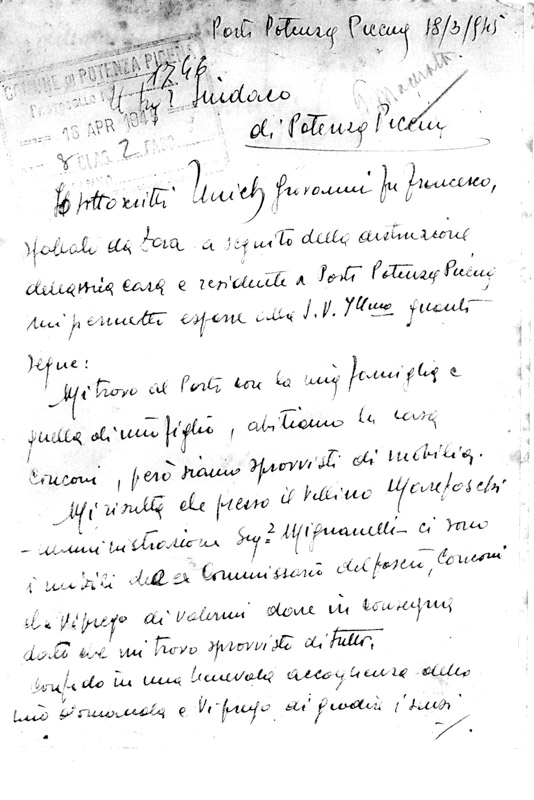 Porto Potenza Picena 18/3/945
COMUNE DI POTENZA PICENA
1746
16 APR 1945
8 CLAS. 2 FASC.
Ill Sigr Sindaco
di Potenza Picena
Io sottoscritto Unich Giovanni fu Francesco,
sfollato da Zara a seguito della distruzione
della mia casa e residente a Porto Potenza Picena
mi permetto esporre alla S.V. Illma quanto
segue:
Mi trovo al Porto con la mia famiglia e
quella di mio figlio, abitiamo la casa
Conconi, però siamo sprovvisti di mobilia.
Mi risulta che presso il Villino Marefoschi
- amministrazione Sigr Mignanelli - ci sono
i mobili del Commissario del fascio, Conconi
che Vi prego di volermi dare in consegna
dato che mi trovo sprovvisto di tutto.
Confido in una benevola accoglienza della
mia domanda e Vi prego di gradire i sensi
./.